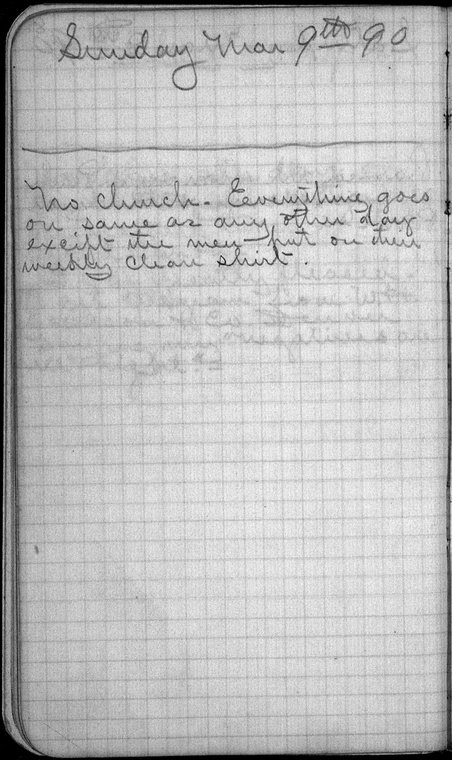 Sunday Mar 9th 90
No church. Eeverything goes
on same as any other day
except the men put on their
weekly clean shirt.